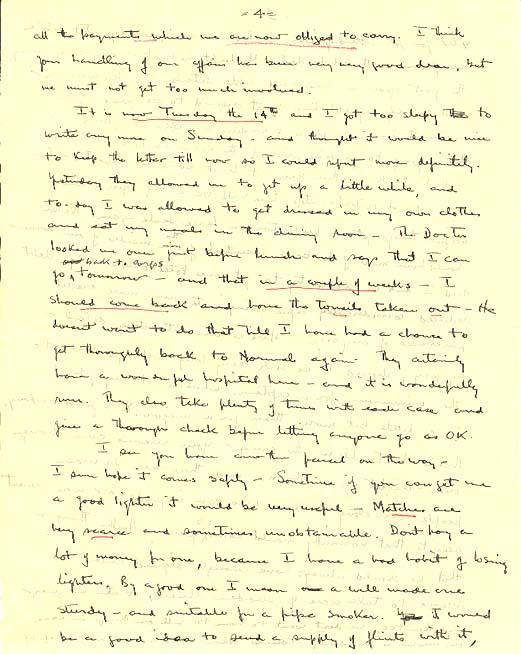 - 4 -
all the payments which we are now obliged to carry. I think
your handling of our affairs has been very very good dear, but
we must not get too much involved.
It is now Tuesday the 14th and I got too sleepy to
write any more on Sunday - and thought it would be nice
to keep the letter till now so I could report more definitely.
Yesterday they allowed me to get up a little while, and
to-day I was allowed to get dressed in my own clothes
and eat my meals in the dining room - The Doctor
looked me over just before lunch and says that I can
go back to corps tomorrow - and that in a couple of weeks - I
should come back and have the tonsils taken out - He
doesn't want to do that till I have had a chance to
get thoroughly back to Normal again. They certainly
have a wonderful hospital here - and it is wonderfully
run. They also take plenty of time with each case and
give a thorough check before letting anyone go as OK.
I see you have another parcel on the way -
I sure hope it comes safely - Sometime if you can get me
a good lighter it would be very useful - Matches are
very scarce and sometimes unobtainable. Dont pay a
lot of money for one, because I have a bad habit of losing
lighters, By a good one I mean a well made one
sturdy - and suitable for a pipe smoker. I would
be a good idea to send a supply of flints with it,